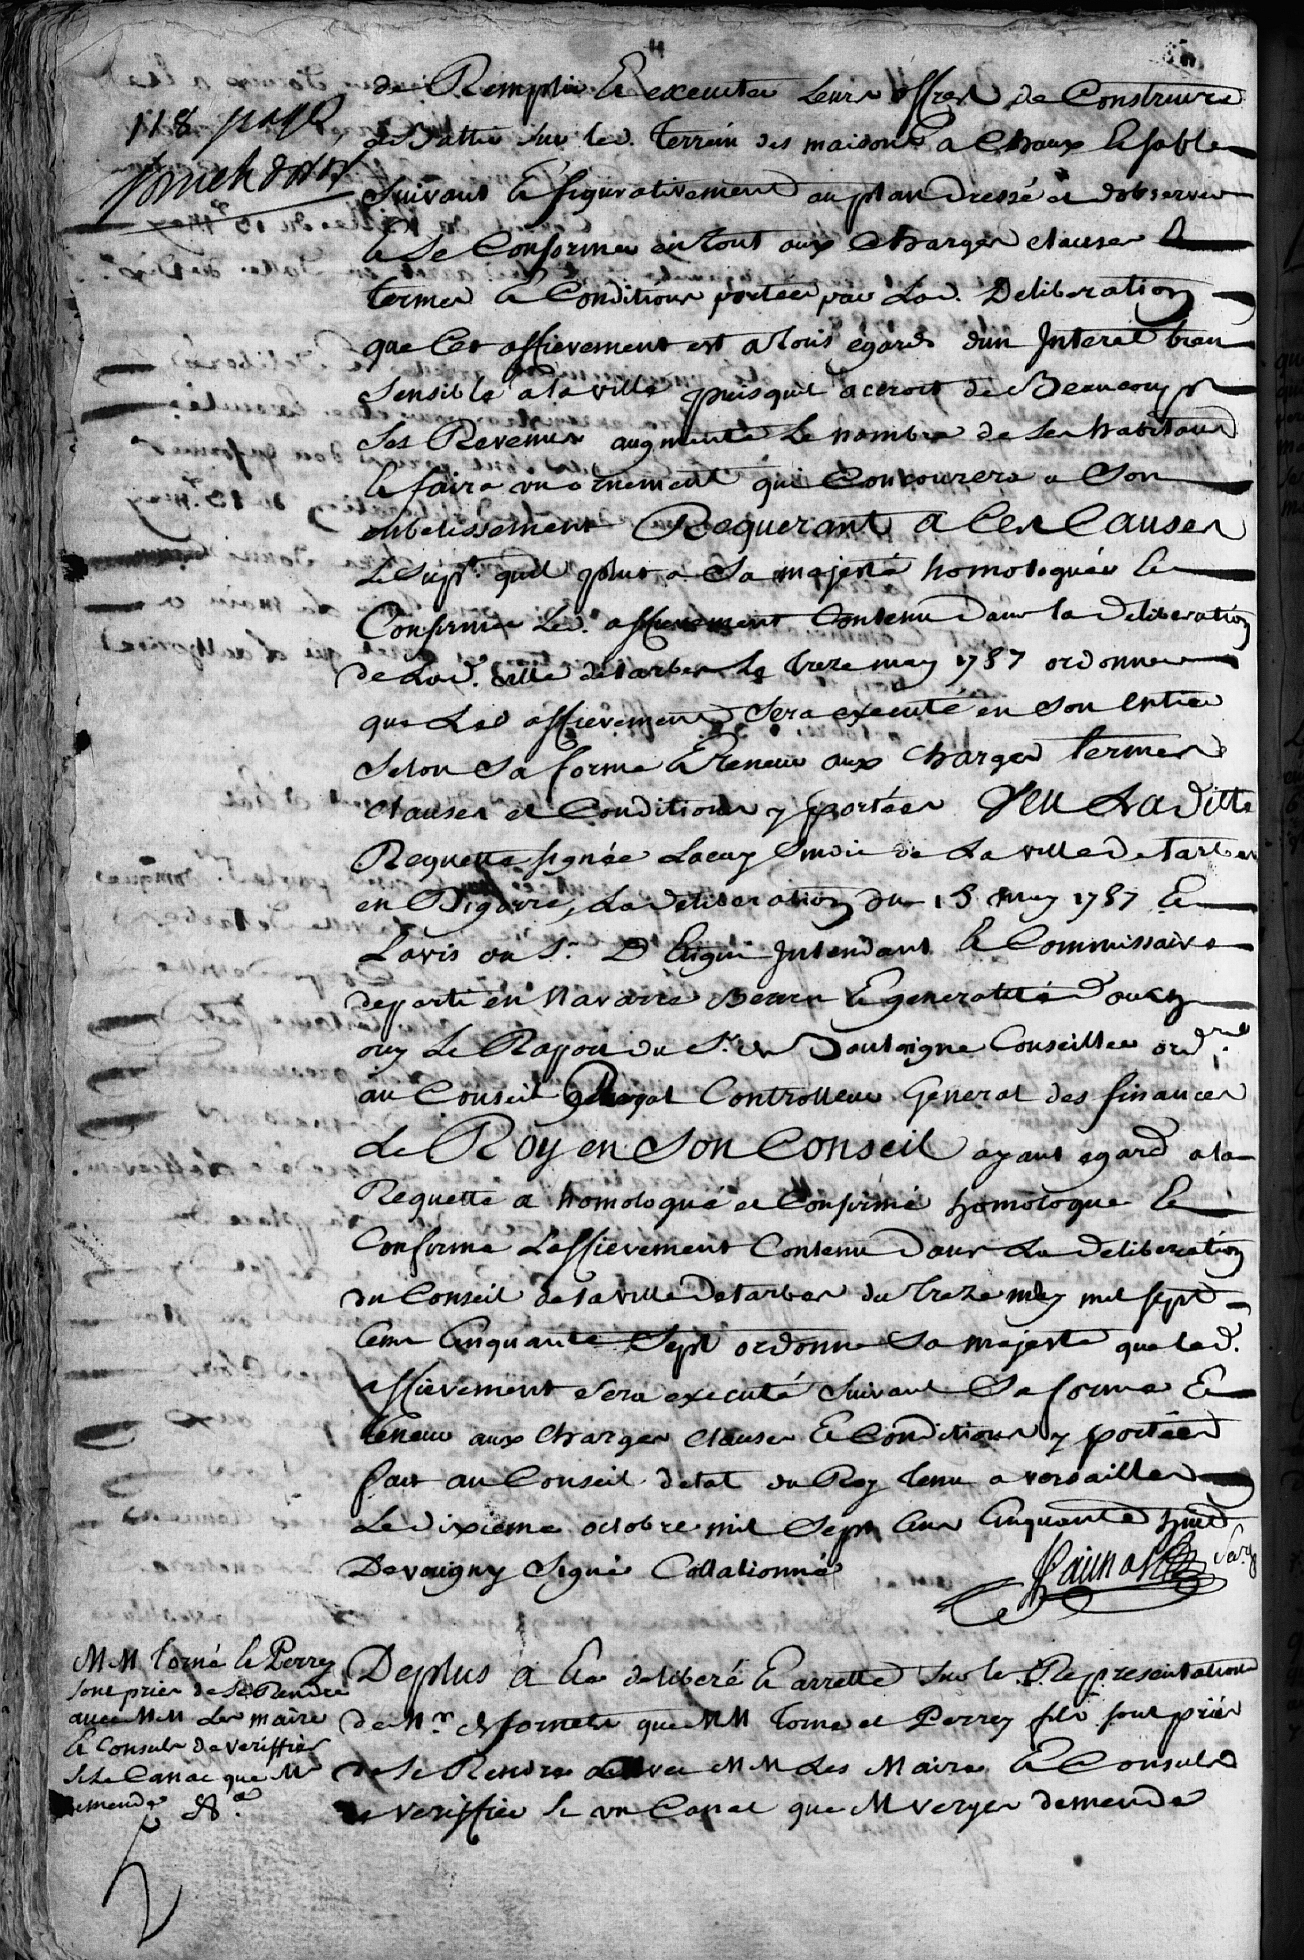 118 page
de Remplir & executer Leurs offres de Construire
& Battir sur led. Terrein des maisons a Chaux & sable
suivant & figurativement au plan dressé et dobserver
& se Conformer en tout aux Charges clauses &
termes & Conditions portées par Lad. Deliberation
que Cet affievement est a tous egards dun Interet bien
sensible a la ville puisquil accroit de Beaucoup
ses Revenus augmente Le nombre de ses habitans
& faira un ornement qui Concourera a son
enbelissement Requerant a Ces Causes
Le supt. quil plut a Sa majesté homologuér &
Confirmer Led. affievement Contenu dans la deliberation
de Lad. ville de tarbes Le treze may 1757 ordonner
que Led affievement sera executé en son entier
selon sa forme & teneur aux Charges termes
clauses et Conditions y portées Veu La ditte
Requette signée Lacay sindic de La ville de tarbes
en Bigorre, La deliberation du 13 may 1757 &
Lavis du Sr. D Etigni Intendant & Commissaire
departi en Navarre Bearn & generalité d'auch
ouy Le Raport du Sr. de Boulongne Conseiller ordre.
au Conseil Royal Controlleur General des finances
Le Roy en son Conseil ayant egard a la
Requette a homologué et Confirmé homologue &
Confirme Laffievement Contenu dans La deliberation
du Conseil de la ville de tarbes du treze may mil sept
Cens Cinquante sept ordonne Sa majesté que led.
affievement sera executé suivant sa forme &
teneur aux Charges clauses & Conditions y portées
fait au Conseil detat du Roy tenu a versailles
Le dixieme octobre mil sept Cens Cinquante huit
Devougny signé Collationné
MM Torné & Perrey
sont priés de se Rendre
avec MM Les maire
& Consuls de veriffier
si Le Canal que Mr
demende &a.
Deplus a Eté deliberé & arretté sur les Representations
de Mr. que MM Torné et Perrey fils sont priés
de se Rendre avec MM Les Maire & Consuls
de veriffier si un Canal que M verges demende